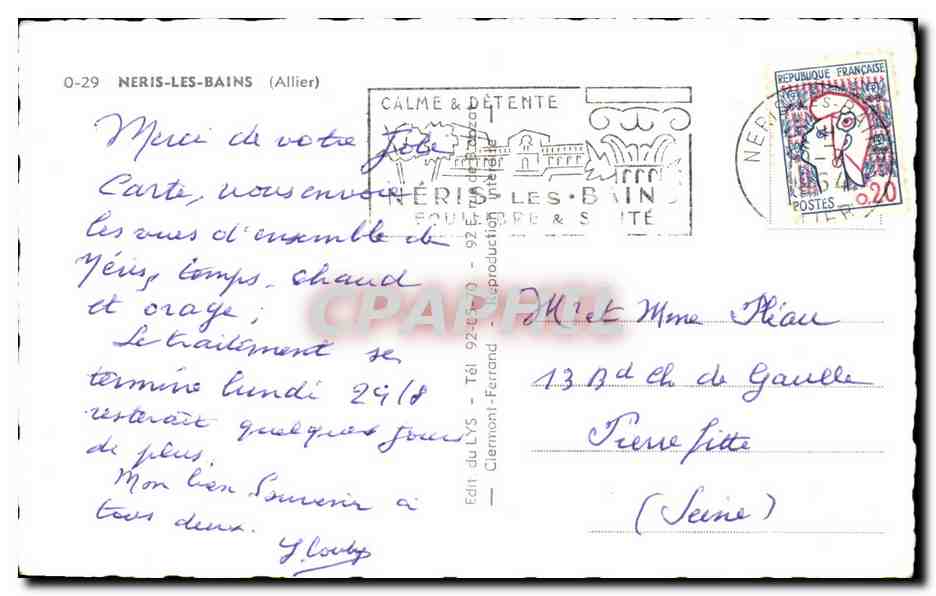 O-29 NERIS-LES-BAINS (Allier)
CALME & DÉTENTE
NÉRIS • LES • BAINS
EQUILIBRE & SANTÉ
NERIS-LES-BAINS
ALLIER
REPUBLIQUE FRANÇAISE
POSTES 0.20
Merci de votre jolie
Carte, vous envoie
les vues d'ensemble de
Néris, temps chaud
et orage ;
Le traitement se
termine lundi 29/8
resterait quelques jours
de plus.
Mon bien Souvenir à
tous deux.
Edit. du LYS - Tél 92-05-70 - 92
Clermont-Ferrand - Reproduction interdite
Mr et Mme Pléau
13 Bd Ch de Gaulle
Pierrefitte
(Seine)
CPAPHIL